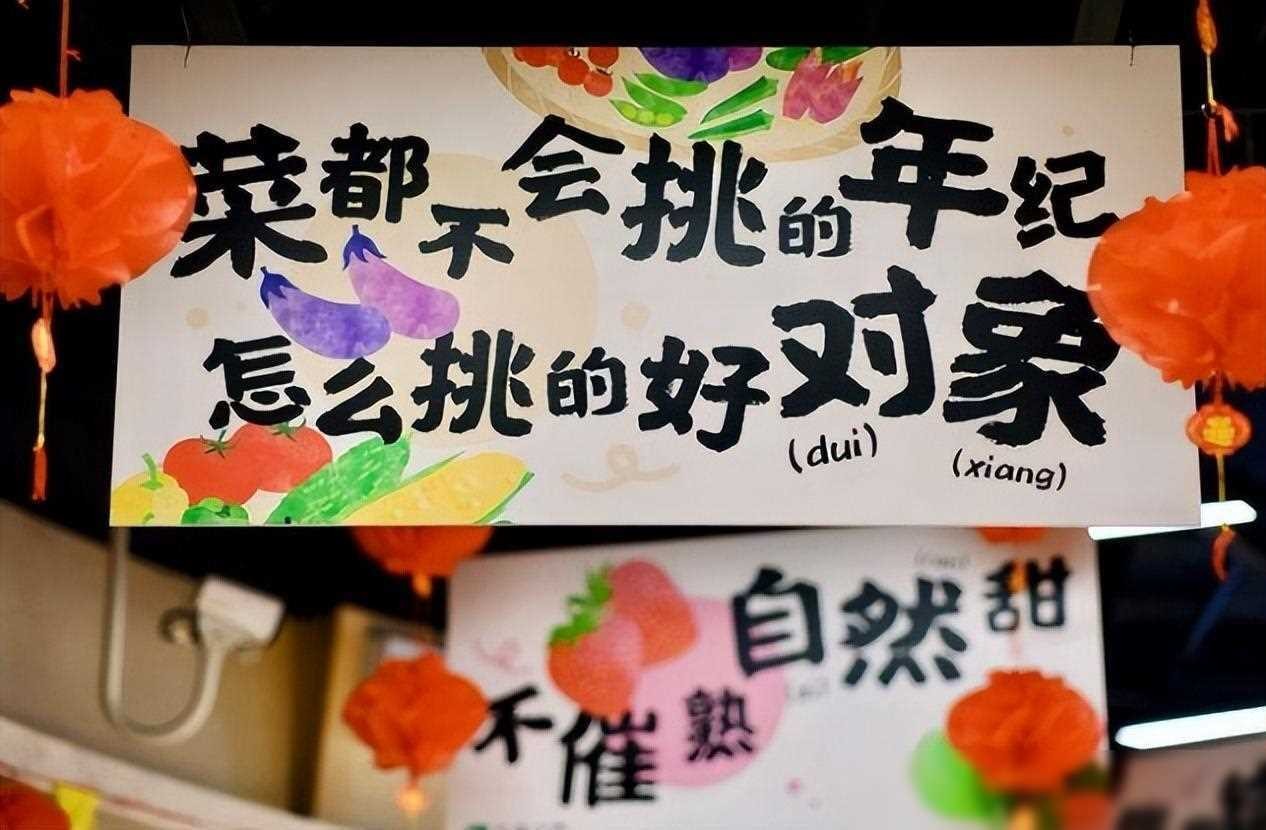 菜都不会挑的年纪
怎么挑的好对象
(dui) (xiang)
自然甜
不催熟